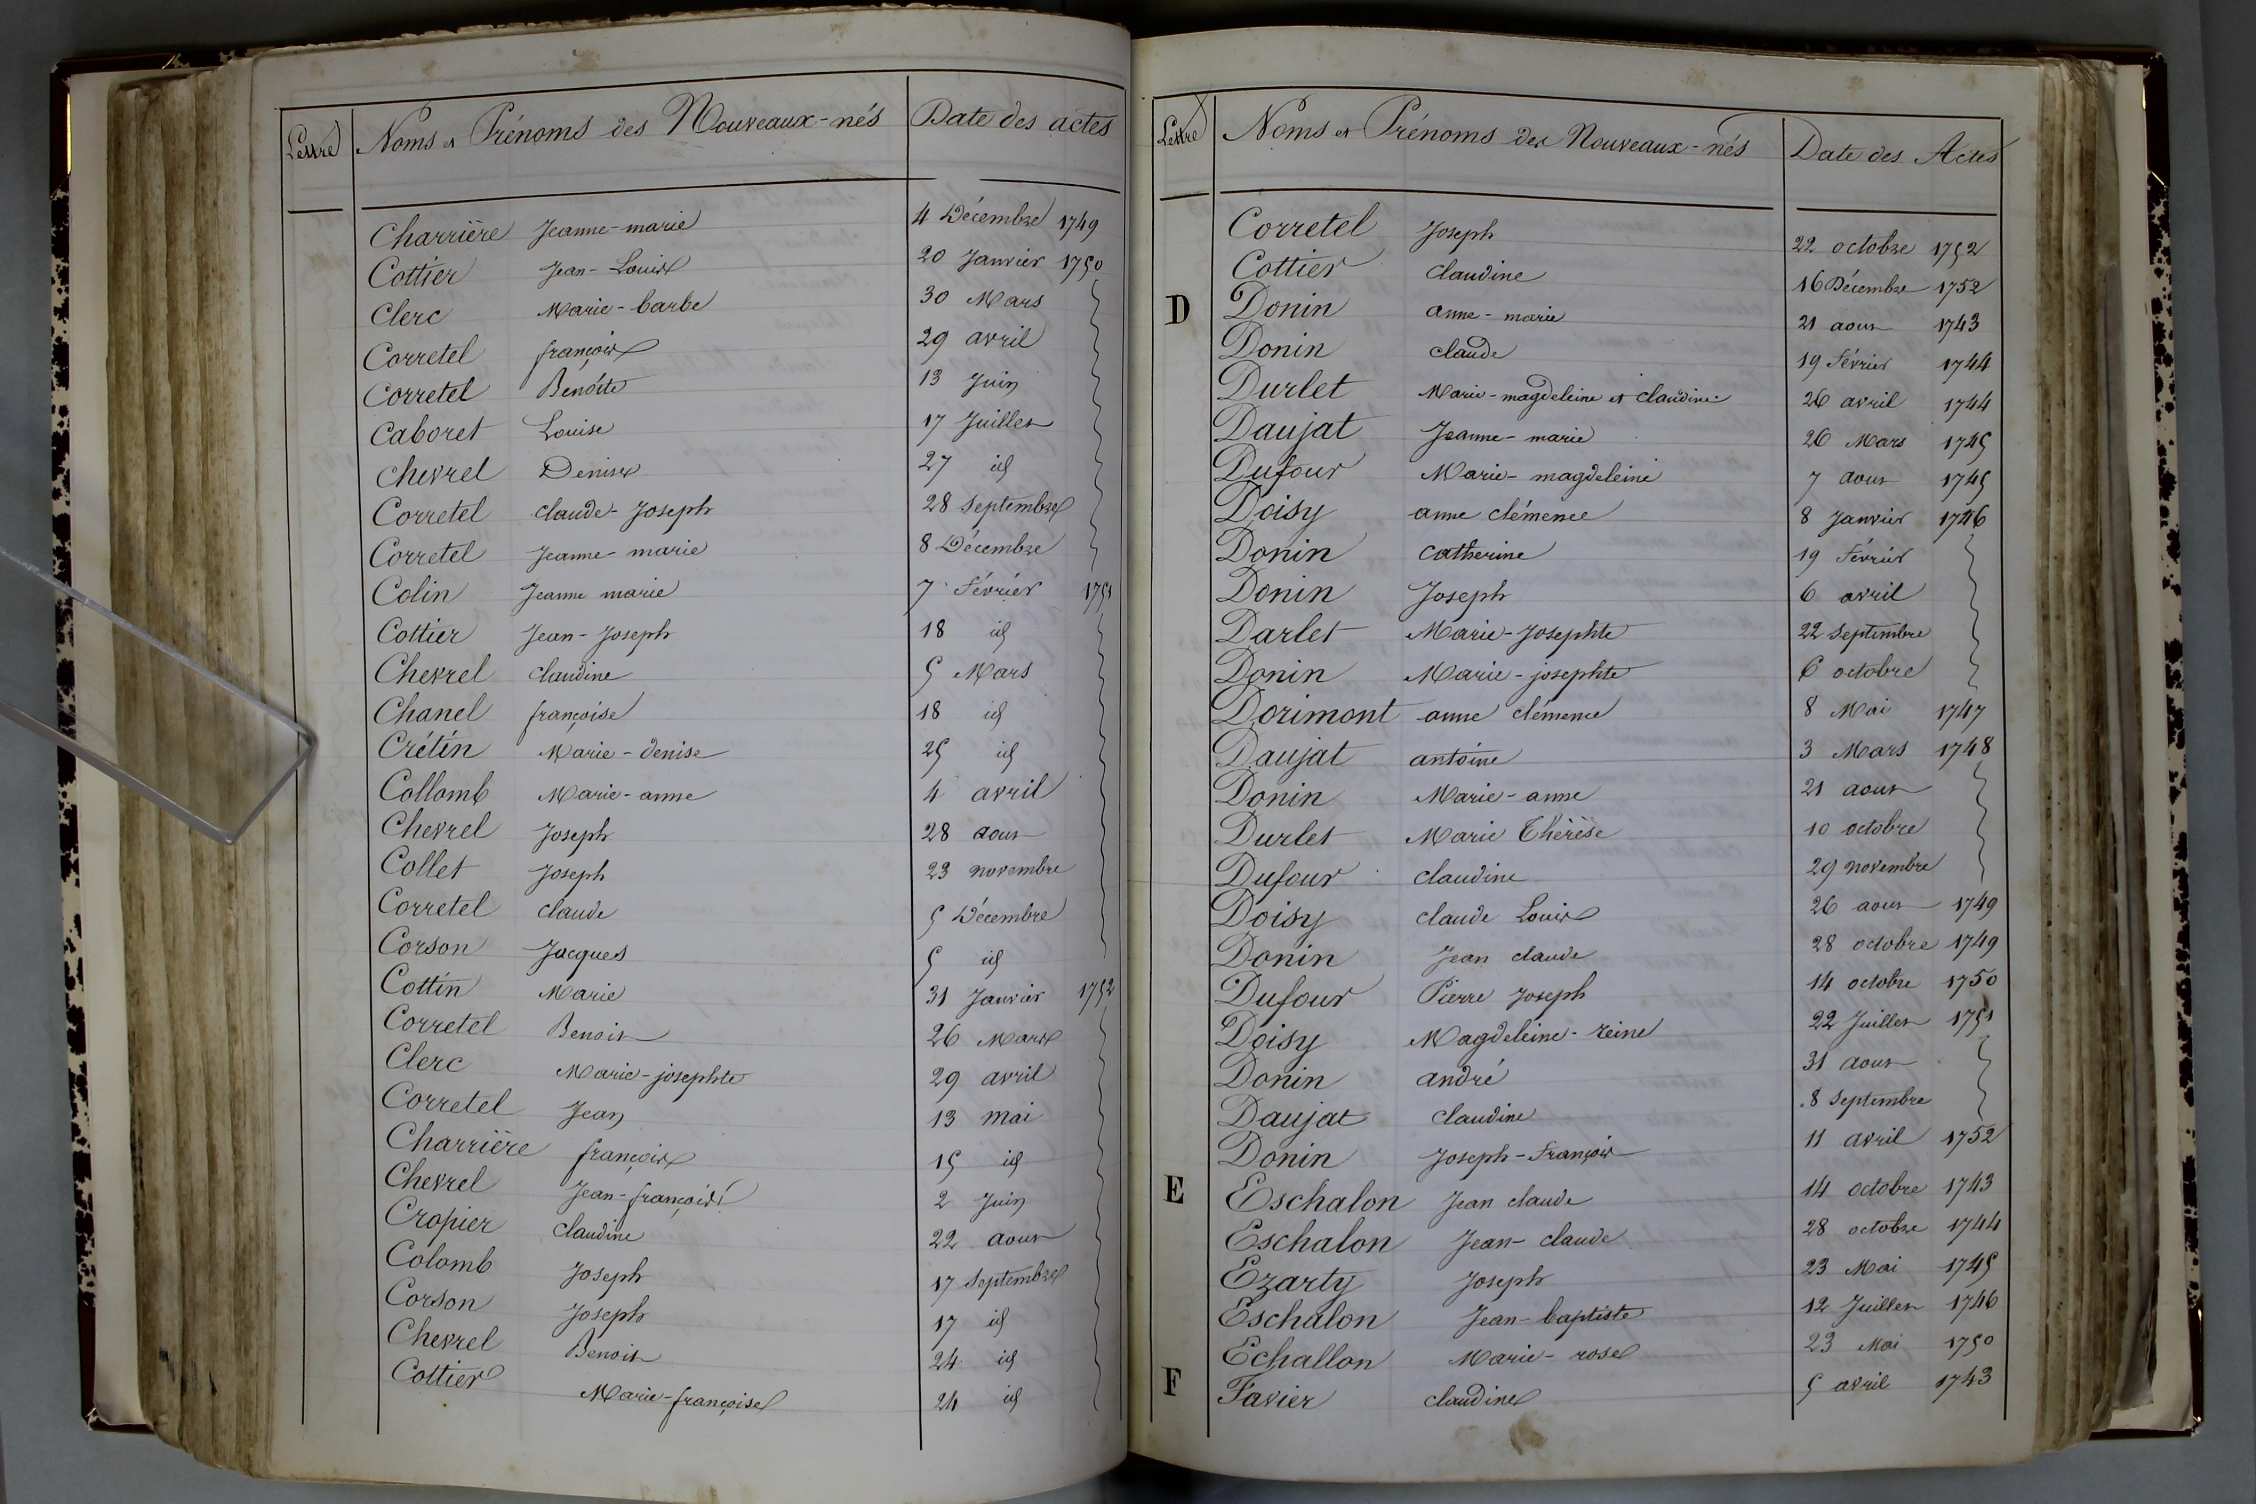 Lettre Noms et Prénoms des Nouveaux-nés Date des actes
Charrière Jeanne-marie 4 Décembre 1749
Cottier Jean-Louis 20 Janvier 1750
Clerc Marie-barbe 30 Mars
Corretel françois 29 avril
Corretel Benoîte 13 Juin
Caboret Louise 17 Juillet
chevrel Denise 27 id
Corretel claude-Joseph 28 Septembre
Corretel Jeanne-marie 8 Décembre
Colin Jeanne marie 7 Février 1751
Cottier Jean-Joseph 18 id
Chevrel claudine 5 Mars
Chanel françoise 18 id
Crétin Marie-denise 25 id
Collomb Marie-anne 4 avril
Chevrel Joseph 28 aout
Collet Joseph 23 novembre
Corretel claude 5 Décembre
Corson Jacques 5 id
Cottin Marie 31 Janvier 1752
Corretel Benoit 26 Mars
Clerc Marie-josephte 29 avril
Corretel Jean 13 mai
Charrière françois 15 id
Chevrel Jean-françois 2 Juin
Cropier claudine 22 aout
Colomb Joseph 17 Septembre
Corson Joseph 17 id
Chevrel Benoit 24 id
Cottier Marie-françoise 24 id
Lettre Noms et Prénoms des Nouveaux-nés Date des Actes
Corretel Joseph 22 octobre 1752
Cottier claudine 16 Décembre 1752
D Donin anne-marie 21 aout 1743
Donin claude 19 Février 1744
Durlet Marie-magdeleine et claudine 26 avril 1744
Daujat Jeanne-marie 26 Mars 1745
Dufour Marie-magdeleine 7 aout 1745
Doisy anne clémence 8 Janvier 1746
Donin catherine 19 Février
Donin Joseph 6 avril
Darlet Marie-Josephte 22 Septembre
Donin Marie-josephte 6 octobre
Dorimont anne clémence 8 Mai 1747
Daujat antoine 3 Mars 1748
Donin Marie-anne 21 aout
Durlet Marie Thérèse 10 octobre
Dufour claudine 29 novembre
Doisy claude Louis 26 aout 1749
Donin Jean claude 28 octobre 1749
Dufour Pierre Joseph 14 octobre 1750
Doisy Magdeleine-reine 22 Juillet 1751
Donin andré 31 aout
Daujat claudine 8 Septembre
Donin Joseph-François 11 avril 1752
E Eschalon Jean claude 14 octobre 1743
Eschalon Jean-claude 28 octobre 1744
Ezarty Joseph 23 Mai 1745
Eschalon Jean-baptiste 12 Juillet 1746
Echallon Marie-rose 23 Mai 1750
F Favier claudine 5 avril 1743